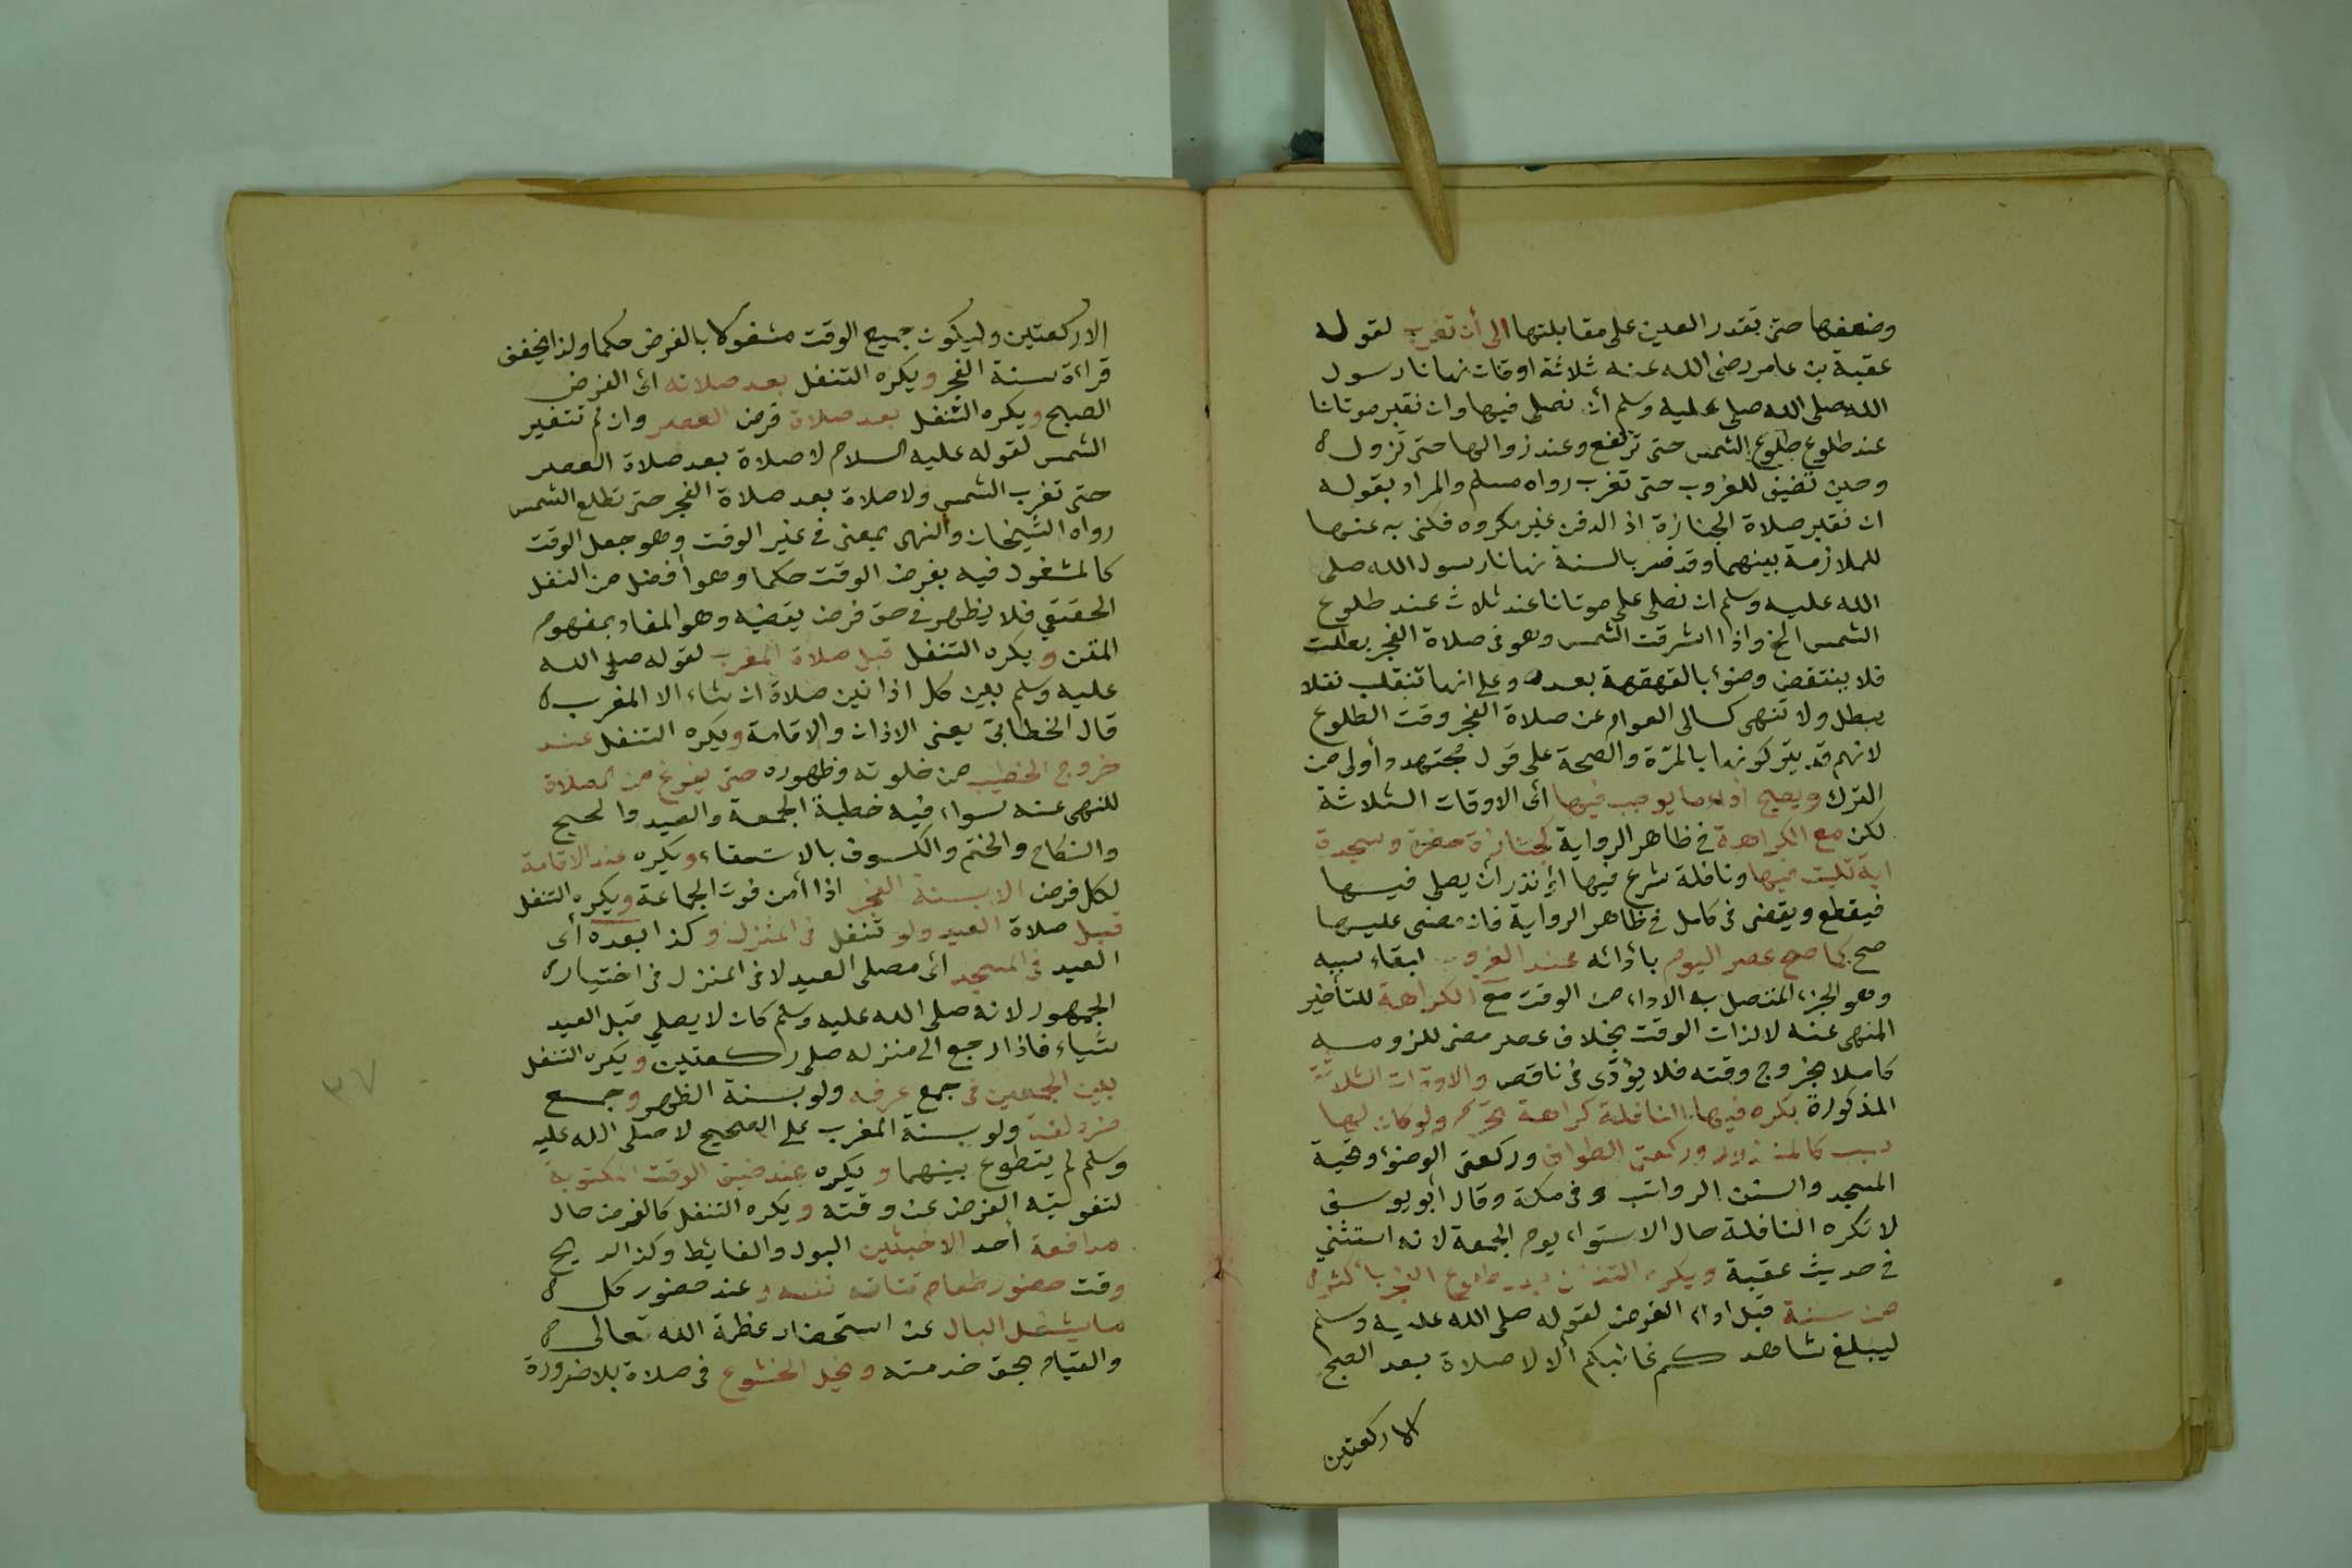 وضعفها حتى تقدر العين على مقابلتها الى أن تغرب لقوله
عقبة بن عامر رضى الله عنه ثلاثة اوقات نهانا رسول
الله صلى الله صلى عليه وسلم أن نصلى فيها وان نقبر موتانا
عند طلوع طلوع الشمس حتى ترتفع وعند زوالها حتى تزول
وحين تضيف للغروب حتى تغرب رواه مسلم والمراد بقوله
ان نقبر صلاة الجنازة اذ الدفن غير مكروه فكنى به عنها
للملازمة بينهما وقد فسر بالسنة نهانا رسول الله صلى
الله عليه وسلم ان نصلى على موتانا عند ثلاث عند طلوع
الشمس الخ واذا اشرقت الشمس وهو فى صلاة الفجر بطلت
فلا ينتقض وضؤا بالقهقهة بعده وعلى انها تنقلب نفلا
يبطل ولا تنهى كسالى العوام عن صلاة الفجر وقت الطلوع
لانهم قد يتركونها بالمرّة والصحة على قول مجتهد وأولى من
الترك ويصح اداء ما يوجب فيها اى الاوقات الثلاثة
لكن مع الكراهة فى ظاهر الرواية كجنازة حضرت وسجدة
اية تليت فيها ونافلة شرع فيها او نذر أن يصلى فيها
فيقطع ويقضى فى كامل فى ظاهر الرواية فان مضى عليها
صح كما صح عصر اليوم بأدائه عند الغروب لبقاء سببه
وهو الجزء المتصل به الاداء من الوقت مع الكراهة للتأخير
المنهى عنه لا لذات الوقت بخلاف عصر مضى للزومه
كاملا بخروج وقته فلا يؤدّى فى ناقص والاوقات الثلاثة
المذكورة يكره فيها النافلة كراهة تحريم ولو كان لها
سبب كالمنذور وركعتى الطواف وركعتى الوضوء وتحية
المسجد والسنن الرواتب و فى مكة وقال أبو يوسف
لا تكره النافلة حال الاستواء يوم الجمعة لانه استثنى
فى حديث عقبة ويكره التنفل بعد طلوع الفجر بأكثر
من سنة قبل اداء الفرض لقوله صلى الله عليه وسلم
ليبلغ شاهدكم غائبكم ألا لا صلاة بعد الصبح
الا ركعتين
الا ركعتين وليكون جميع الوقت مشغولا بالفرض حكما ولذا يخفف
قراءة سنة الفجر ويكره التنفل بعد صلاته اى الفرض
الصبح ويكره التنفل بعد صلاة فرض العصر وان لم تتغير
الشمس لقوله عليه السلام لا صلاة بعد صلاة العصر
حتى تغرب الشمس ولا صلاة بعد صلاة الفجر حتى تطلع الشمس
رواه الشيخان والنهى بمعنى فى غير الوقت وهو جعل الوقت
كالمشغول فيه بفرض الوقت حكما وهو أفضل من النفل
الحقيقي فلا يظهر فى حق فرض يقضيه وهو المفاد بمفهوم
المتن ويكره التنفل قبل صلاة المغرب لقوله صلى الله
عليه وسلم بين كل اذانين صلاة ان شاء الا المغرب
قال الخطابى يعنى الاذان والاقامة ويكره التنفل عند
خروج الخطيب من خلوته وظهوره حتى يفرغ من الصلاة
للنهى عنه سواء فيه خطبة الجمعة والعيد والحج
والنكاح والختم والكسوف بالاستسقاء ويكره عند الاقامة
لكل فرض الا سنة الفجر اذا أمن فوت الجماعة ويكره التنفل
قبل صلاة العيد ولو تنفل فى المنزل وكذا بعده أى
العيد فى المسجد اى مصلى العيد لا فى المنزل فى اختيار
الجمهور لانه صلى الله عليه وسلم كان لا يصلي قبل العيد
شياء فاذا رجع الى منزله صلى ركعتين ويكره التنفل
بين الجمعين فى جمع عرفه ولو بسنة الظهر وجمع
مزدلفة ولو بسنة المغرب على الصحيح لا صلى الله عليه
وسلم لم يتطوع بينهما ويكره عند ضيق الوقت المكتوبة
لتفويته الفرض عن وقته ويكره التنفل كالفرض حال
مدافعة أحد الاخبثين البول والغائط وكذا الريح
وقت حضور طعام تتاقه نفسه وعند حضور كل
ما يشغل البال عن استحضار عظمة الله تعالى
والقيام بحق خدمته ويخل الخشوع فى صلاة بلا ضرورة
٣٧